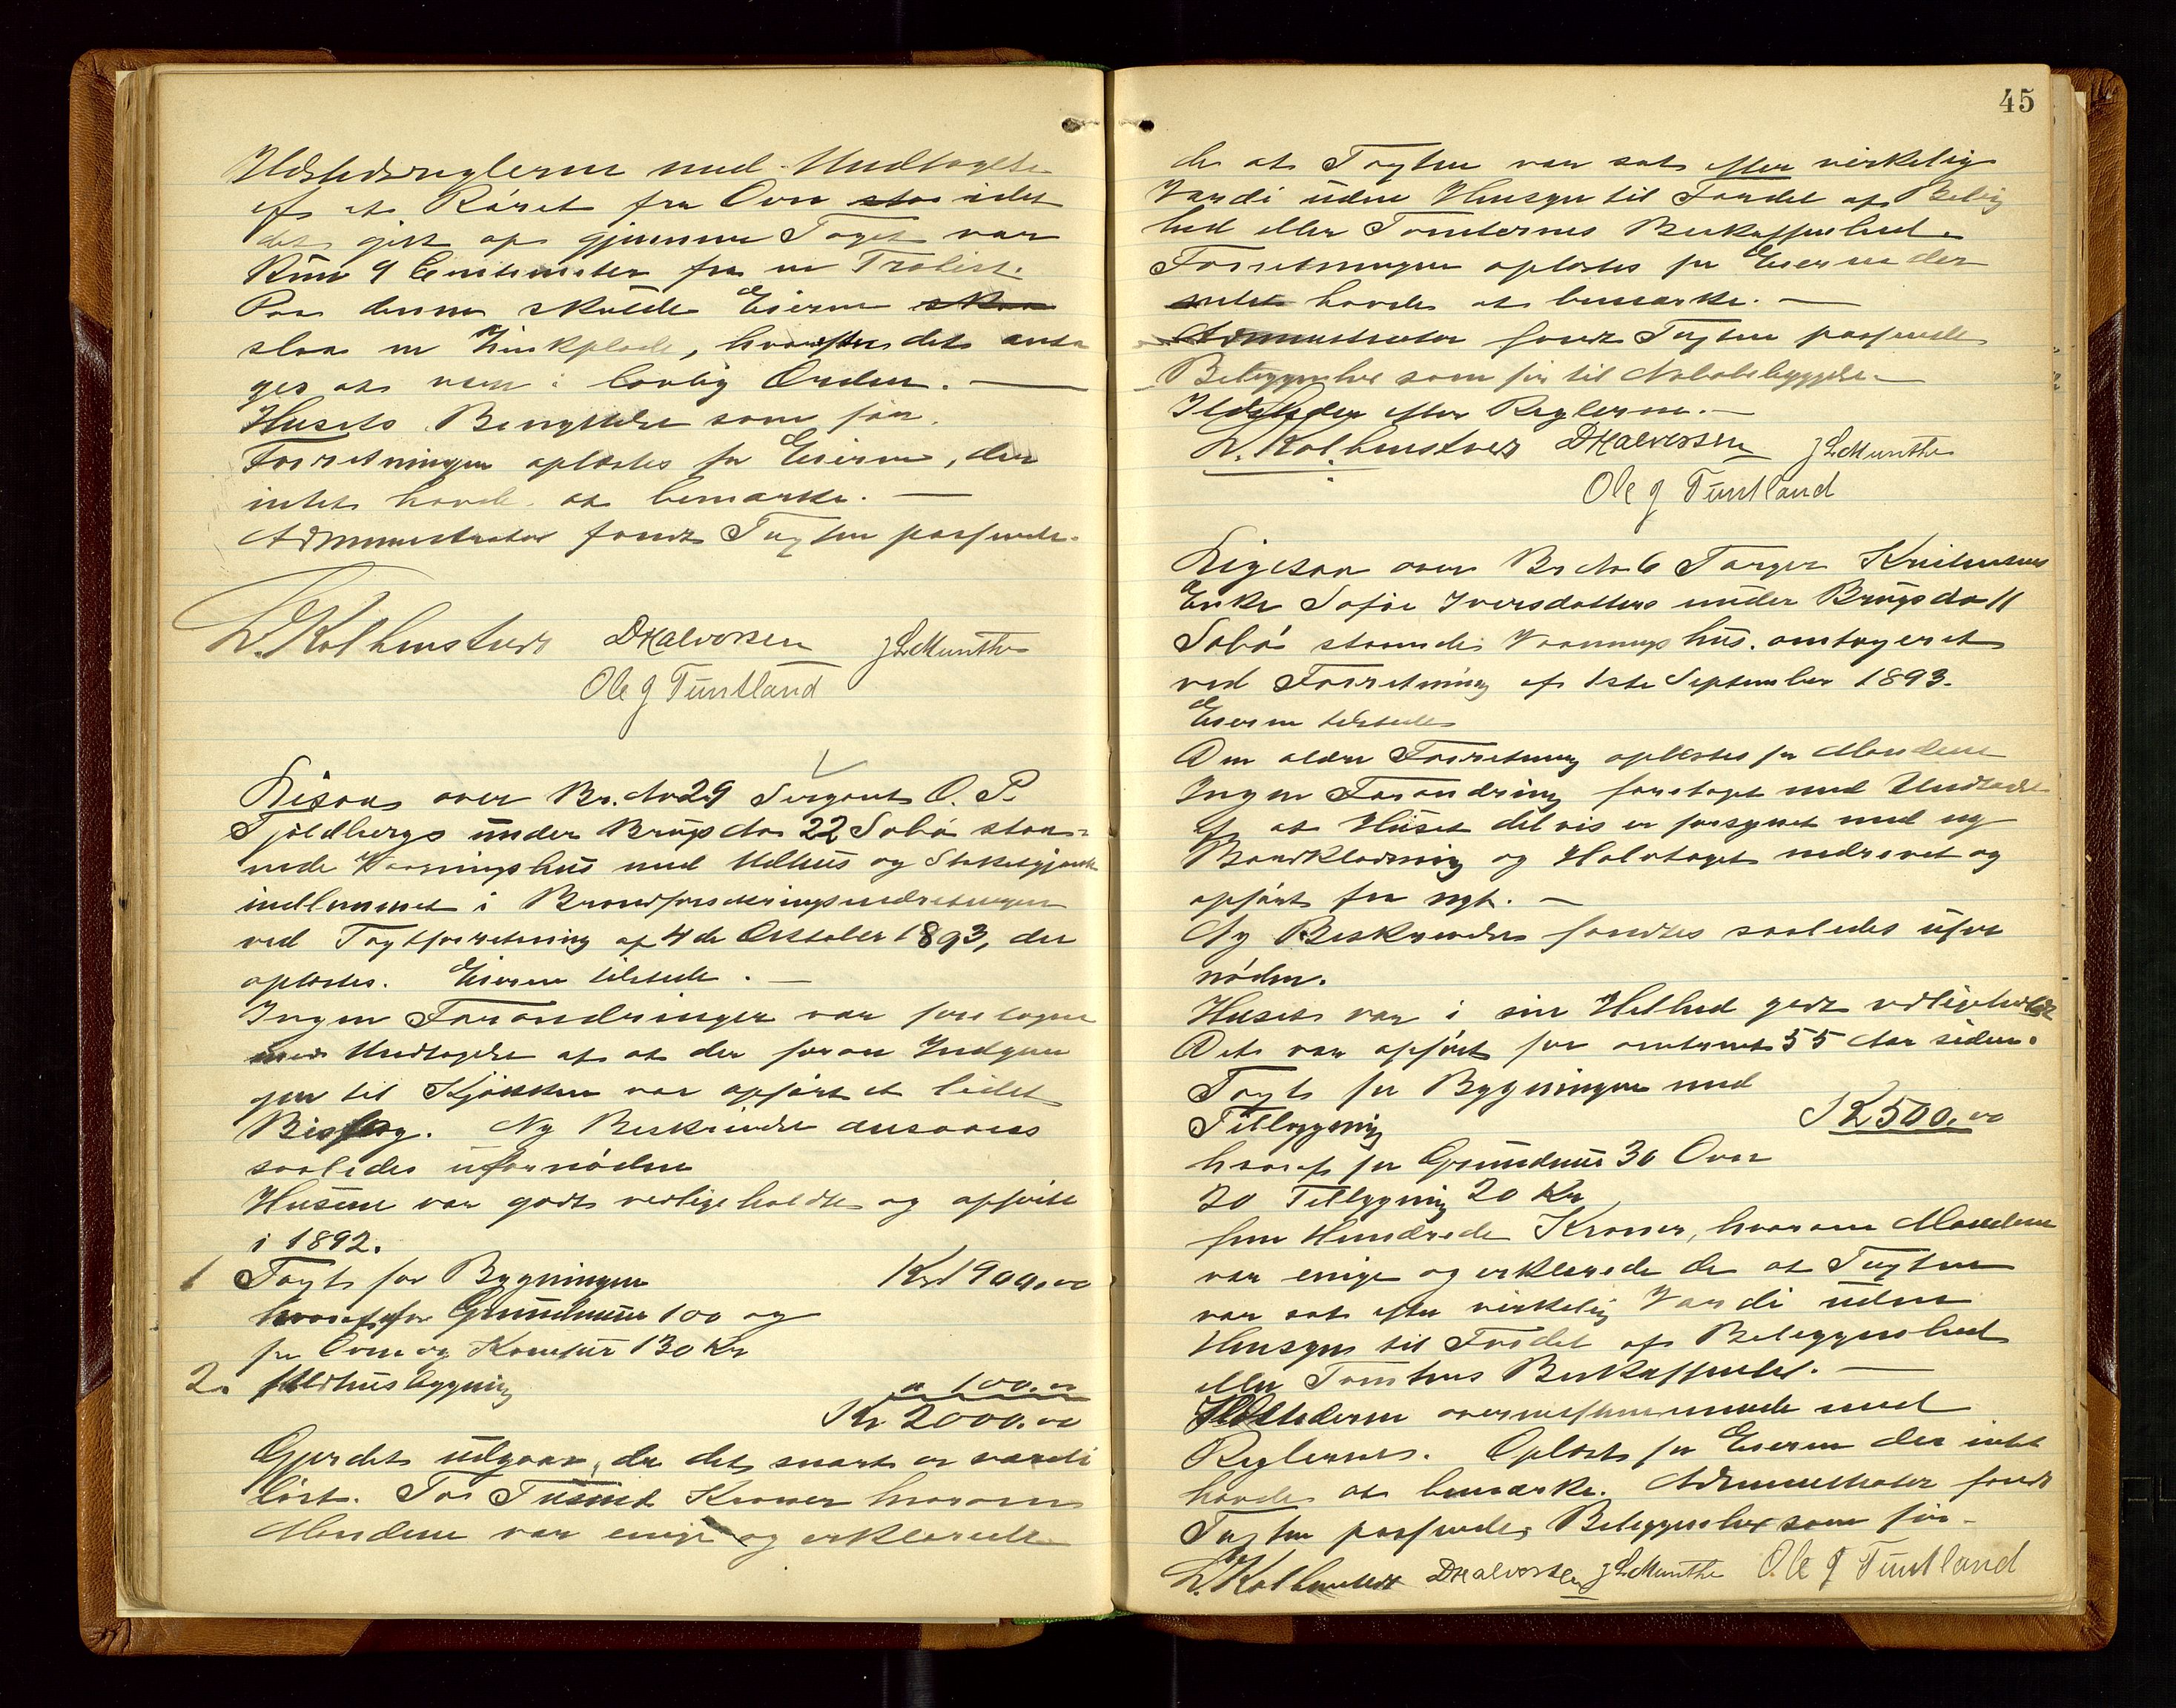 Ildstedsreglerne med Undtagelse
af at Röret fra Ovn staa idet
det gik op gjennem Taget var
Kun 9 Centimeter fra en Trælist.
Paa denne skulde Eieren skaa
slaa en Zinkplade, hvorefter det anta
ges at være i lovlig Orden. —
Husets Benyttelse som för.
Forretningen oplæstes for Eieren, der
intet havde at bemærke. —
Administrator fandt Taxten passende.
L. Kolbenstvedt DHalvorsen J L Munthe
Ole G Tuntland
Ligesaa over Br. No 29 Sergeant O. P.
Fjeldbergs under Brugs No 22 Sobö staa-
ende Vaaningshus med Udhus og Staketgjærde
indlemmet i Brandforsikringsindretningen
ved Taxtforretning af 4de Oktober 1893, der
oplæstes. Eieren tilstede. —
Ingen Forandringer var foretagne
med Undtagelse af at der foran Indgan
gen til Kjökken var opfört et lidet
Bislag. Ny Beskrivelse ansaaes
saaledes ufornöden
Husene var godt vedligeholdte og opförte
i 1892.
1 Taxt for Bygningen Kr 1900.00
hvoraf for Grundmur 100 og
for Ovne og Komfur 130 Kr
2. Udhusbygning " 100.00
Kr 2000.00
Gjerdet udgaar, da det snart er værdi
löst. To Tusind Kroner hvorom
Mændene var enige og erklærede
45
de at Taxten var sat efter virkelig
Værdi uden Hensyn til Fordel af Belig
hed eller Tomternes Beskaffenhed.
Forretningen oplæstes for Eieren der
intet havde at bemærke. —
Administrator fandt Taxten passende
Beliggenhed som för til Nabobebyggelse.
Ildsteder efter Reglerne. —
L. Kolbenstvedt DHalvorsen J L Munthe
Ole G Tuntland
Ligesaa over Br No 6 Torger Knudsens
Enke Sofie Iversdatters under Brugs No 11
Sobö staaende Vaaningshus. omtaxeret
ved Forretning af 1ste September 1893.
Eieren tilstede
Den ældre Forretning oplæstes for Mændene
Ingen Forandring foretaget med Undtagelse
af at Huset delvis er forsynet med ny
Bordklædning og Halvtaget nedrevet og
opfört fra nyt. —
Ny Beskrivelse fandtes saaledes ufor
nöden.
Huset var i sin Helhed godt vedligeholdt
Det var opfört for omtrent 55 Aar siden.
Taxt for Bygningen med
Tilbygning K 500.00
hvoraf for Grundmur 30 Ovn
20 Tilbygning 20 Kr
fem Hundrede Kroner, hvorom Mændene
var enige og erklærede de at Taxten
var sat efter virkelig Værdi uden
Hensyn til Fordel af Beliggenhed
eller Tomtens Beskaffenhed. —
Ildstederne overensstemmende med
Reglerne. Oplæst for Eieren der intet
havde at bemærke. Administrator fandt
Taxten passende, Beliggenhed som för -
L. Kolbenstvedt DHalvorsen J L Munthe Ole G Tuntland